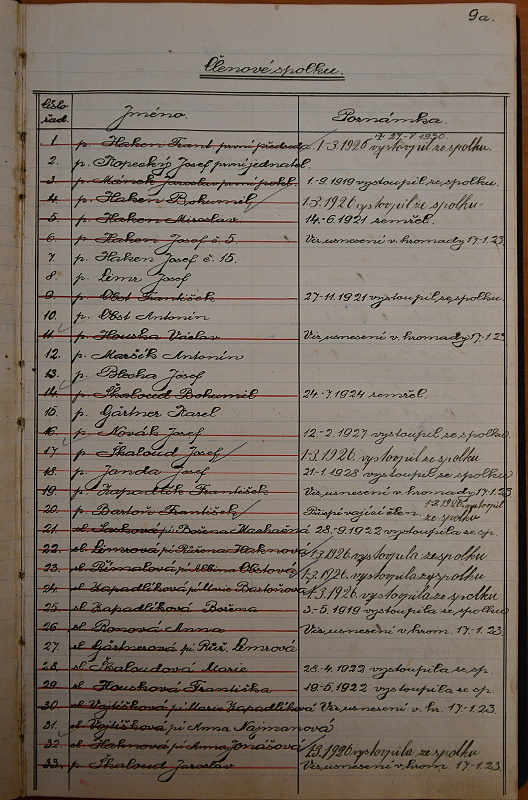 9a.
Členové spolku.
Číslo řad. Jméno. Poznámka.
1. p. Haken Frant. první předseda 1-3. 1926 vystoupil ze spolku.
2. p. Kopecký Josef první jednatel
3. p. Mánek Jaroslav první pokl. 1-9.1919 vystoupil ze spolku.
4. p. Haken Bohumil 1-3.1926 vystoupil ze spolku.
5. p. Haken Miroslav 14.-6.1921 zemřel.
6. p. Haken Josef č. 5. Viz. usnesení v. hromady 17-1.23
7. p. Haken Josef č. 15.
8. p. Lémr Josef
9. p. Obst František 27-11.1921 vystoupil ze spolku.
10. p. Obst Antonín
11. p. Houska Václav Viz. usnesení v. hromady 17-1.23
12. p. Maršík Antonín
13. p. Blecha Josef
14. p. Škaloud Bohumil 24.-7.1924 zemřel.
15. p. Gärtner Karel
16. p. Novák Josef 12.-2.1927 vystoupil ze spolku.
17. p. Škaloud Josef 1-3.1926. vystoupil ze spolku
18. p. Janda Josef 21-1.1928 vystoupil ze spolku
19. p. Zapadlík František Viz. usnesení v. hromady 17-1.23
20. p. Bartoň František Přispívající člen 1-3.1926 vystoupil ze spolku
21. sl. pí Božena 28.-9.1922 vystoupila ze sp.
22. sl. Lémrová pí Růžena Haknová 1-3.1926. vystoupila ze spolku
23. sl. pí Albína Obstová 1-3.1926. vystoupila ze spolku
24. sl. Zapadlíková pí Marie Bartoňová 1-3.1926. vystoupila ze spolku
25. sl. Zapadlíková Božena 3.-5.1919 vystoupila ze spolku
26. sl. Anna Viz. usnesení v. hrom. 17-1.23.
27. sl. Gärtnerová pí Růž. Lémrová
28. sl. Škaloudová Marie 28-4.1922 vystoupila ze sp.
29. sl. Housková Františka 19-5.1922 vystoupila ze sp.
30. sl. Vojtíšková pí Marie Zapadlíková Viz. usnesení v. hr. 17-1.23.
31. sl. Vojtíšková pí Anna Najmanová
32. sl. Haknová pí Anna Jonášová 1-3.1926 vystoupila ze spolku
33. p. Škaloud Jaroslav Viz. usnesení v. hrom. 17-1.23.